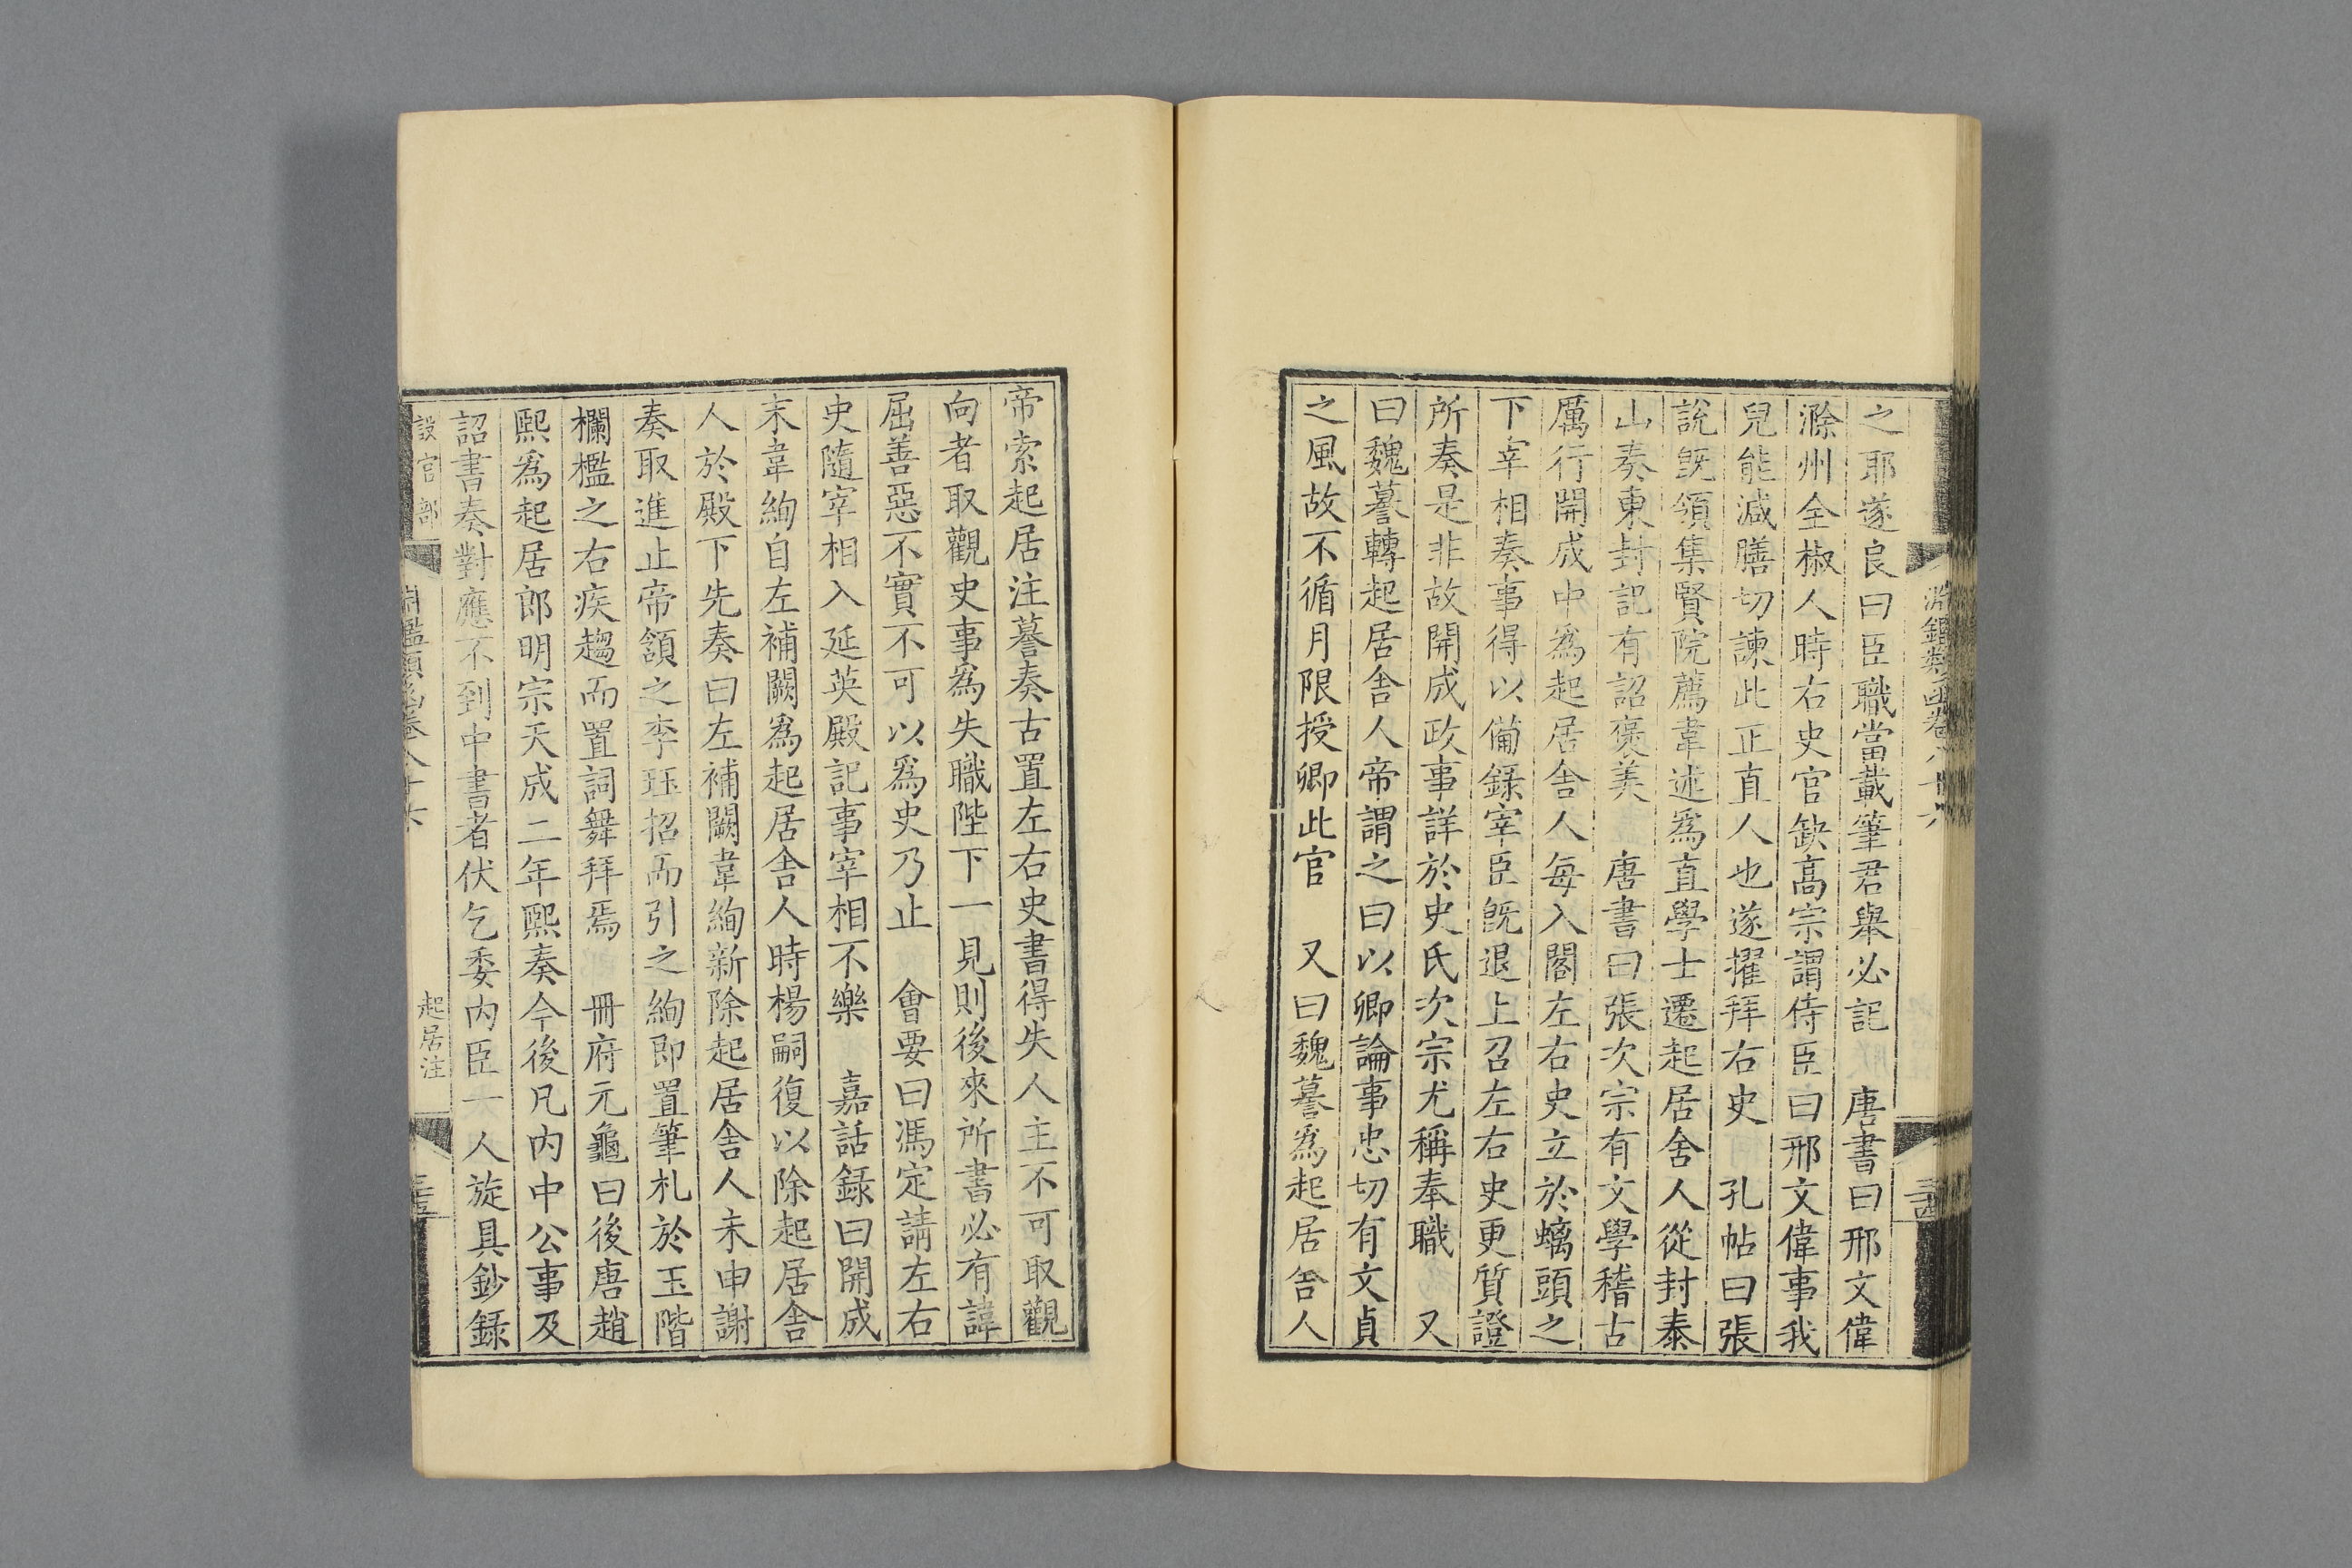 淵鑑類函卷八十六
之耶遂良曰臣職當載筆君舉必記　唐書曰邢文偉
滁州全椒人時右史官缺高宗謂侍臣曰邢文偉事我
兒能減膳切諫此正直人也遂擢拜右史　孔帖曰張
說旣領集賢院薦韋述爲直學士遷起居舍人從封泰
山奏東封記有詔褒美　唐書曰張次宗有文學稽古
厲行開成中爲起居舍人每入閣左右史立於螭頭之
下宰相奏事得以備錄宰臣旣退上召左右史更質證
所奏是非故開成政事詳於史氏次宗尤稱奉職　又
曰魏謩轉起居舍人帝謂之曰以卿論事忠切有文貞
之風故不循月限授卿此官　又曰魏謩爲起居舍人
帝索起居注謩奏古置左右史書得失人主不可取觀
向者取觀史事爲失職陛下一見則後來所書必有諱
屈善惡不實不可以爲史乃止　會要曰馮定請左右
史隨宰相入延英殿記事宰相不樂　嘉話錄曰開成
末韋絢自左補闕爲起居舍人時楊嗣復以除起居舍
人於殿下先奏曰左補闕韋絢新除起居舍人未申謝
奏取進止帝頷之李珏招而引之絢即置筆札於玉階
欄檻之右疾趨而置詞舞拜焉　冊府元龜曰後唐趙
熙爲起居郎明宗天成二年熙奏今後凡內中公事及
詔書奏對應不到中書者伏乞委內臣一人旋具鈔錄
設官部　淵鑑類函卷八十六　起居注